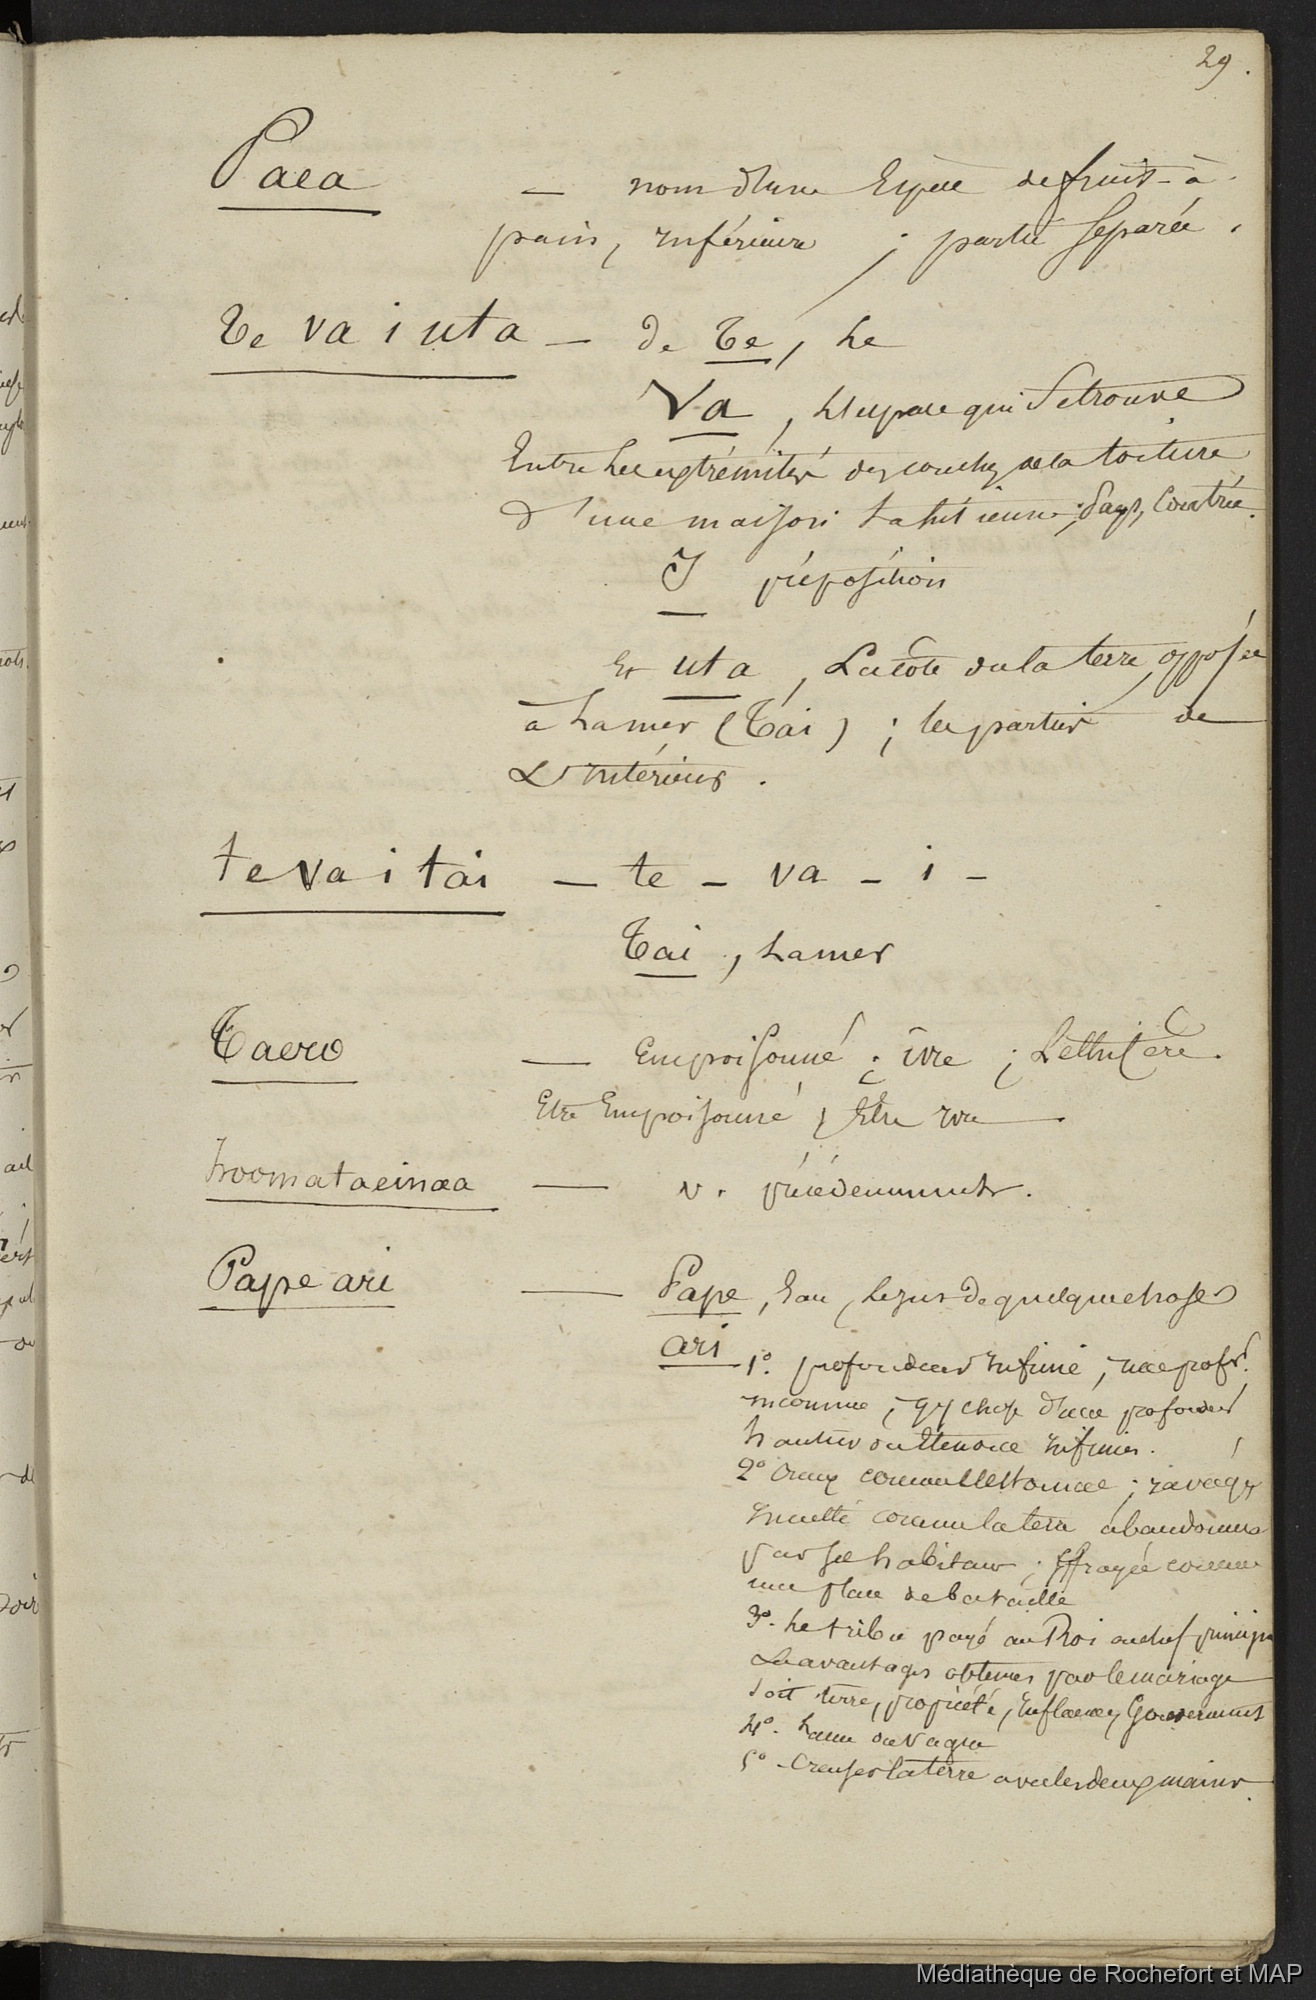 29.
Paea — nom d'une Espèce de fruit-à-
pain, inférieure ; partie séparée.
Te va i uta — de Te, Le
Va, l'Espace qui se trouve
Entre les extrémités des couches de la toiture
d'une maison tahitienne ; Pays, Contrée.
I préposition
Et uta, Le côté de la terre opposée
à la mer (Tai) ; les parties de
L'intérieur.
te va i tai — te - va - i -
Tai, la mer
Taero — Empoisonné ; ivre ; Léthifère.
Etre Empoisonné ; Etre ivre
hoomataeinaa — v. précédemment.
Pape ari — Pape, Eau, le jus de quelque chose
ari 1º. profondeur infinie, une profr.
inconnue ; qq chose d'une profondeur
hauteur ou Etendue infinies.
2º Creux comme l'Estomac ; ravagé
inculte comme la terre abandonnée
par ses habitans ; Effrayée comme
une place de bataille
3º. Le tribu payé au Roi au chef principa
Les avantages obtenus par le mariage
soit terre, propriété, influence, Gouvernement
4º. Lame ou vague
5º - Creuser la terre avec les deux mains.
Médiathèque de Rochefort et MAP